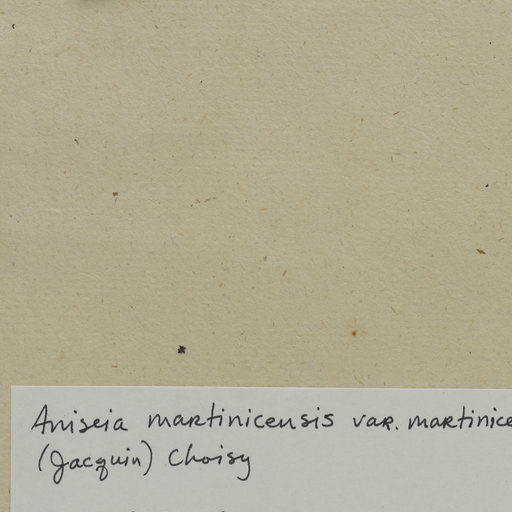 Aniseia martinicensis var. martinice
(Jacquin) Choisy